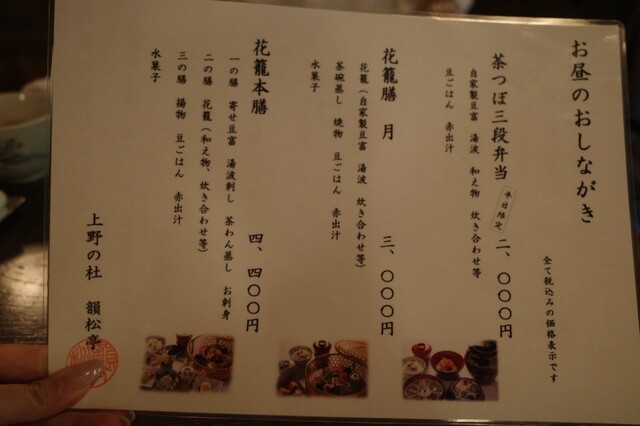 お昼のおしながき
全て税込みの価格表示です
茶つぼ三段弁当 平日限定 二、〇〇〇円
自家製豆富 湯波 和え物 炊き合わせ等
豆ごはん 赤出汁
花籠膳 月 三、〇〇〇円
花籠(自家製豆富 湯波 炊き合わせ等)
茶碗蒸し 焼物 豆ごはん 赤出汁
水菓子
花籠本膳 四、四〇〇円
一の膳 寄せ豆富 湯波刺し 茶わん蒸し お刺身
二の膳 花籠(和え物、炊き合わせ等)
三の膳 揚物 豆ごはん 赤出汁
水菓子
上野の杜 韻松亭